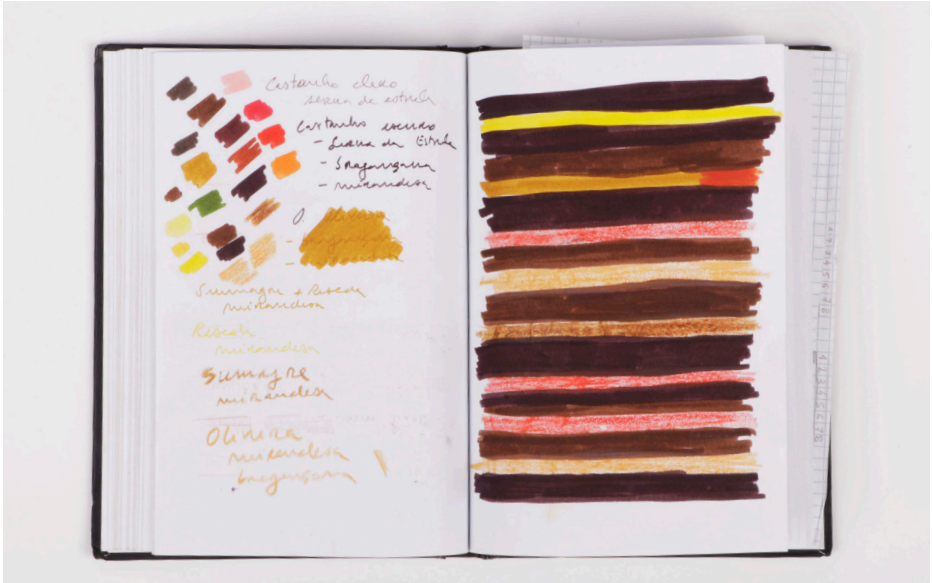 Castanho claro
serra de estrela
Castanho escuro
- Serra da Estrela
- Bragançana
- mirandesa
Sumagre + Reseda
mirandesa
Reseda
mirandesa
Sumagre
mirandesa
Oliveira
mirandesa
bragançana